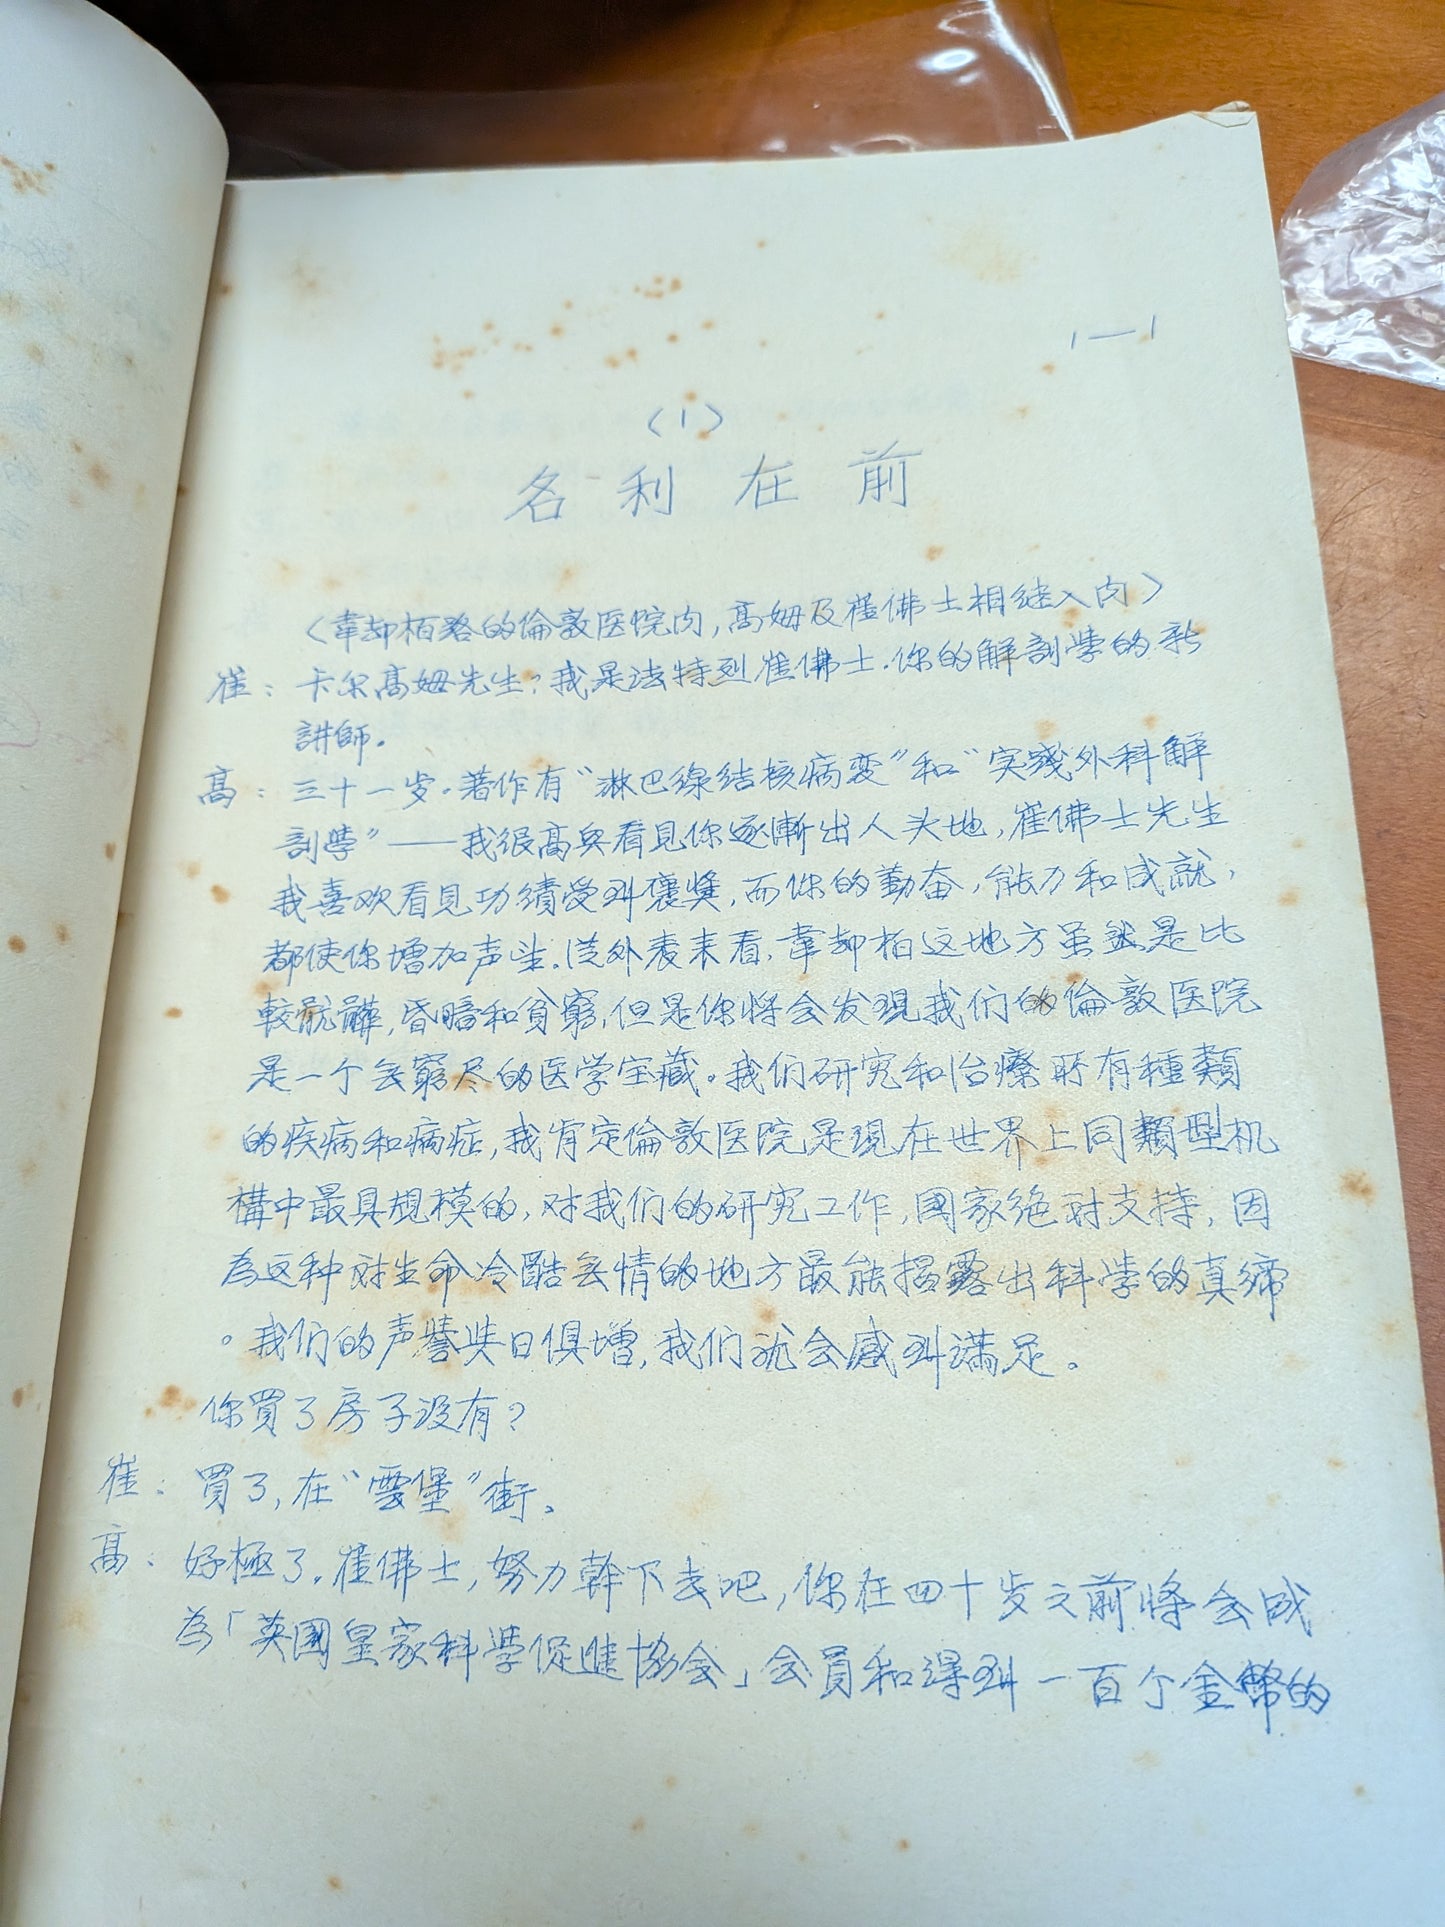 1—1
〈1〉
名利在前
〈韋却柏路的倫敦医院内，高姆及崔佛士相继入内〉
崔：卡尔高姆先生？我是法特列崔佛士．你的解剖學的新
講師。
高：三十一岁。著作有“淋巴線结核病变”和“实踐外科解
剖學”——我很高兴看見你逐漸出人头地，崔佛士先生
我喜欢看見功績受到褒獎，而你的勤奋，能力和成就，
都使你增加声望．從外表来看，韋却柏这地方虽然是比
較骯髒，昏暗和貧窮，但是你将会发現我们的倫敦医院
是一个無窮尽的医学宝藏。我们研究和治療所有種類
的疾病和病症，我肯定倫敦医院是現在世界上同類型机
構中最具規模的，对我们的研究工作，國家绝对支持，因
為这种对生命冷酷無情的地方最能揭露出科学的真締
。我们的声譽與日俱增，我们就会感到滿足。
你買了房子没有？
崔：買了，在“雲堡”街。
高：好極了。崔佛士，努力幹下去吧，你在四十岁之前將会成
為「英國皇家科學促進協会」会員和得到一百个金幣的